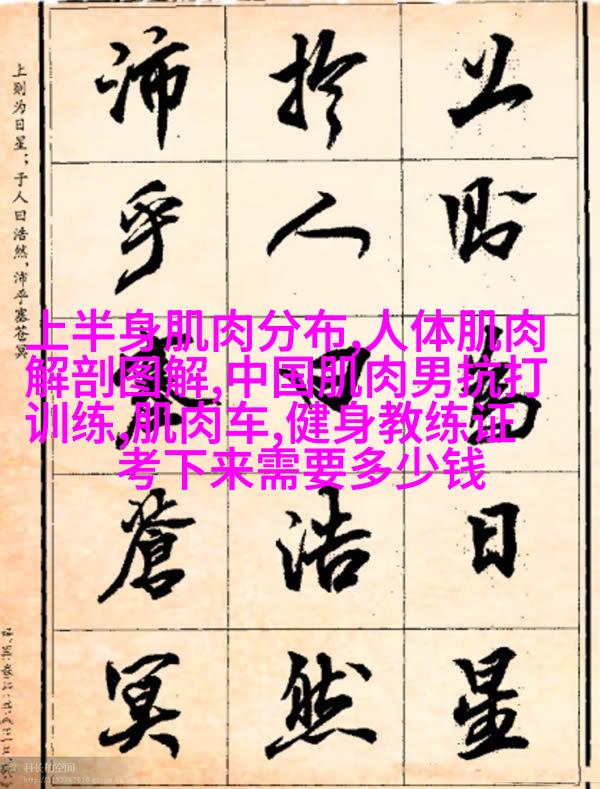 上則為日星
於人曰浩然
沛乎塞蒼冥
上则为日星；于人曰浩然，沛乎塞苍冥
上半身肌肉分布,人体肌肉
解剖图解,中国肌肉男抗打
训练,肌肉车,健身教练证
考下来需要多少钱
科长的空间